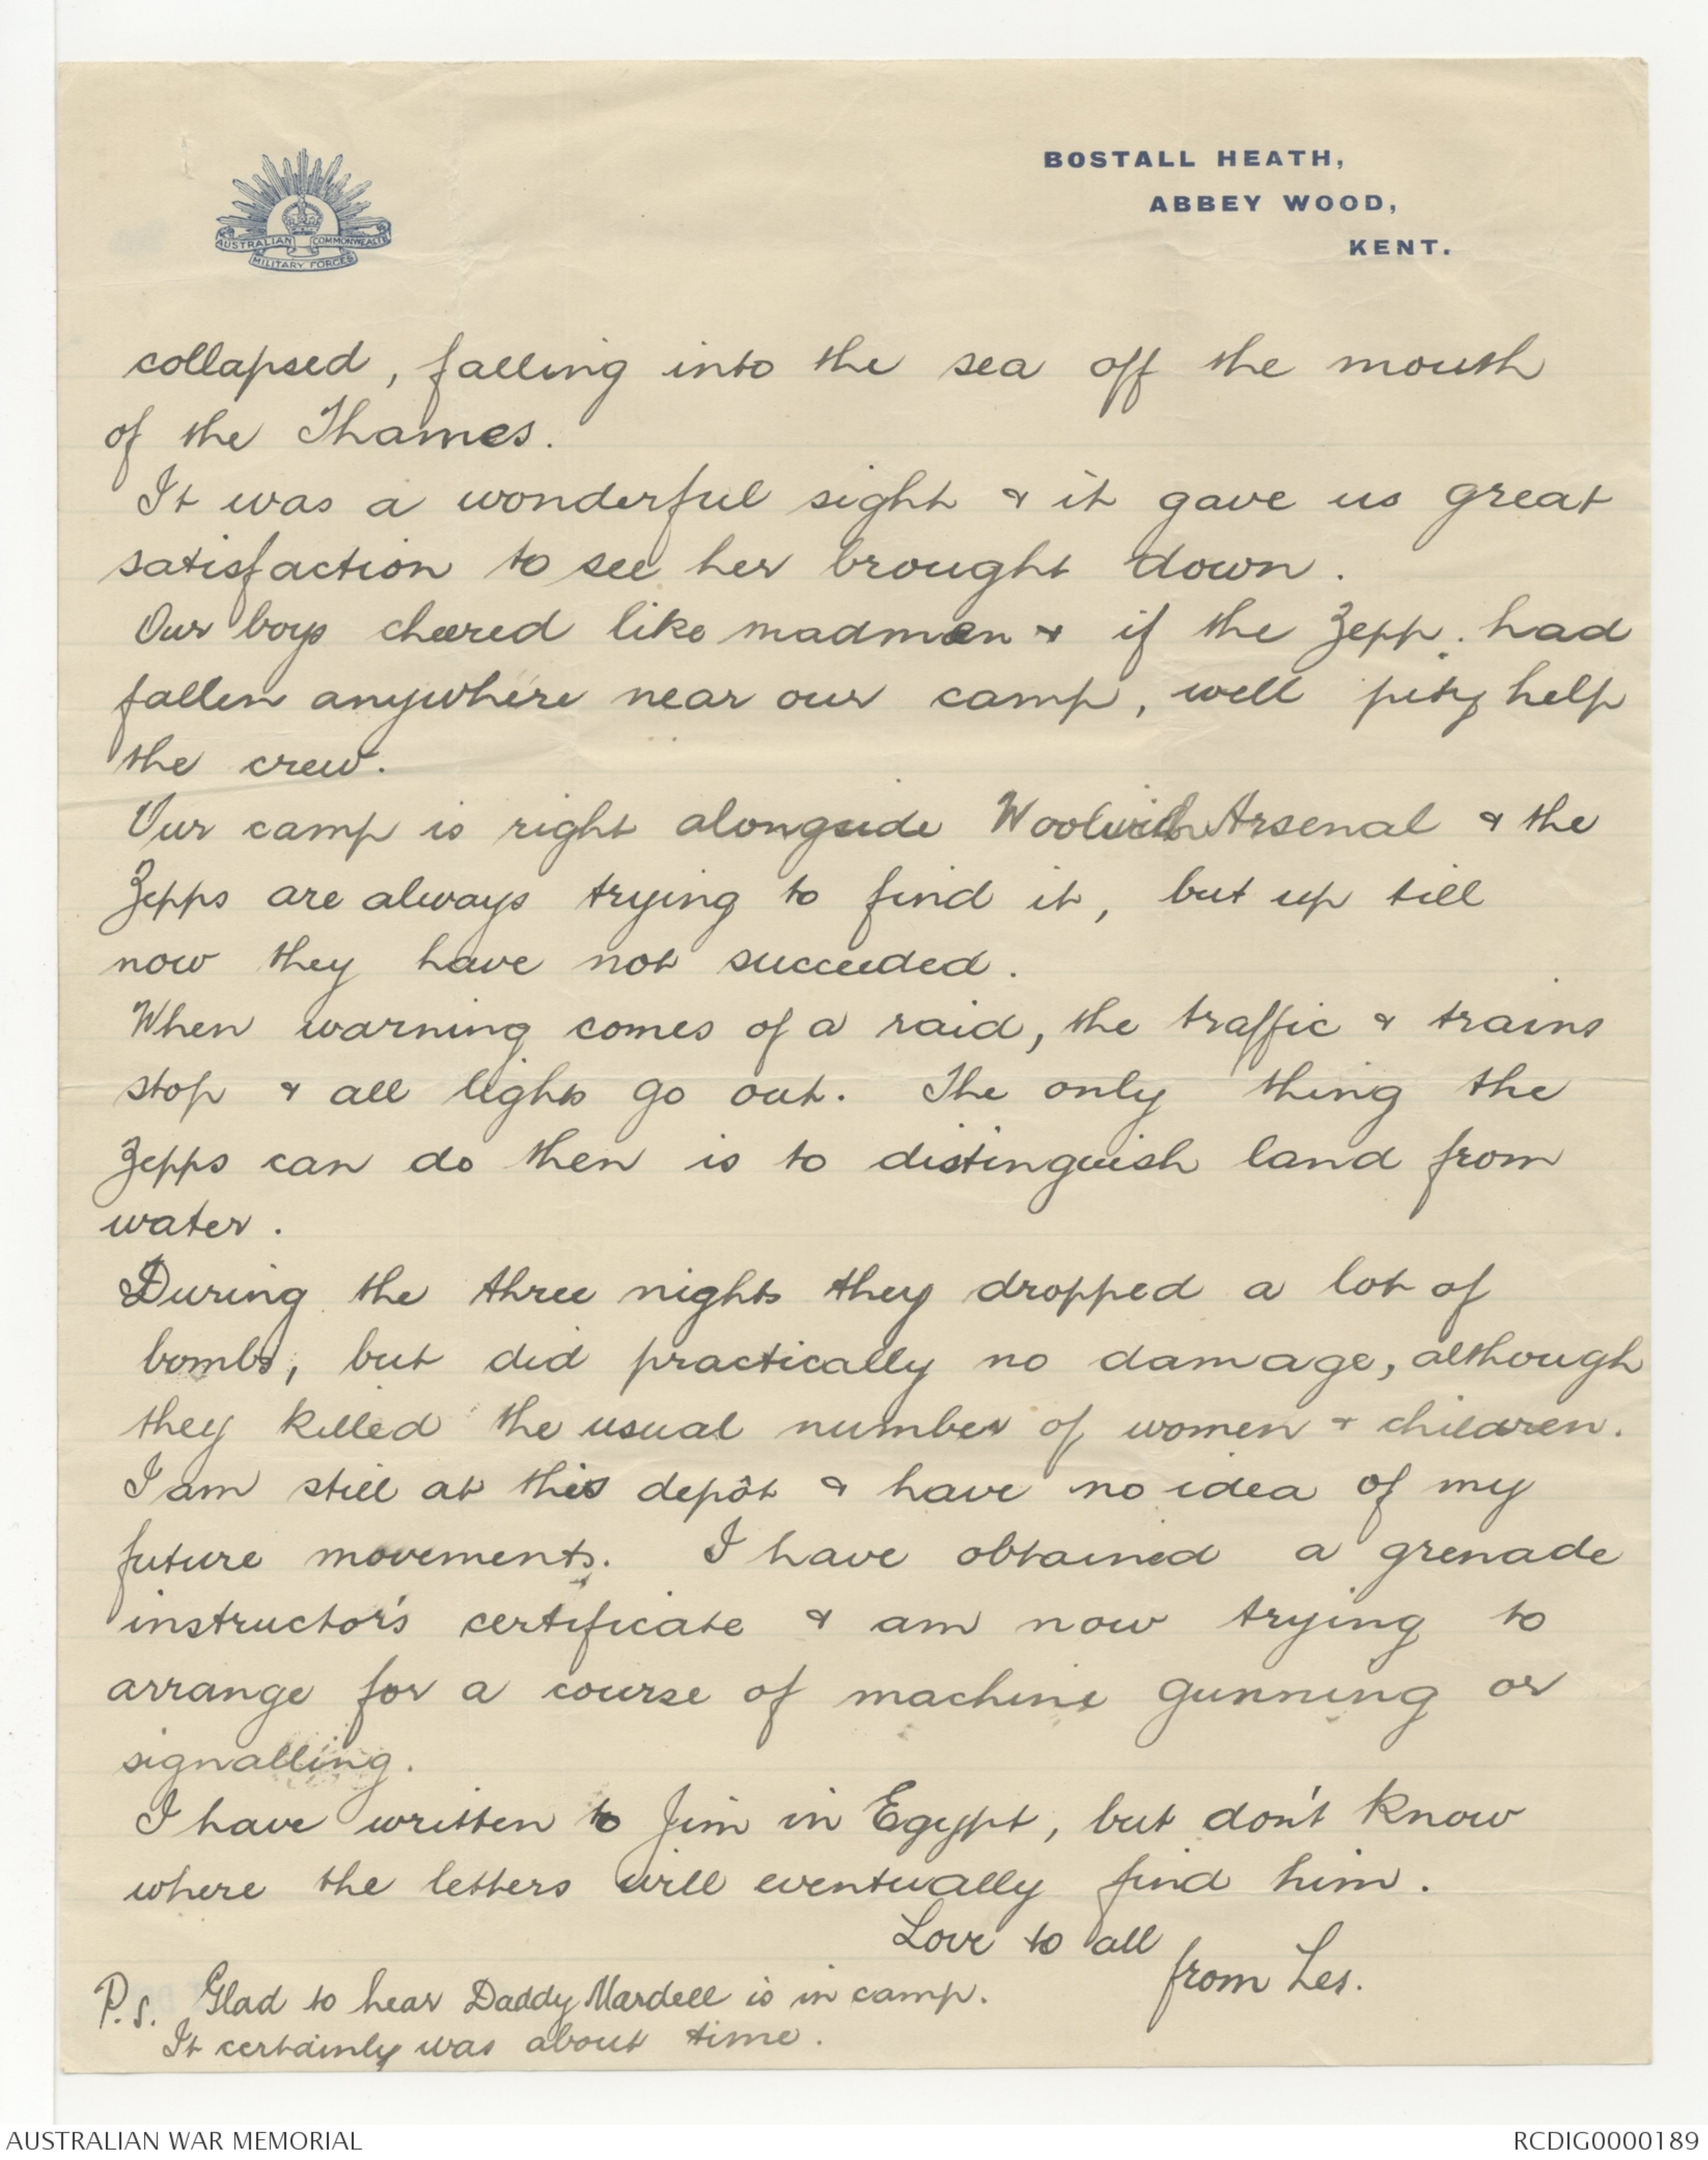 AUSTRALIAN COMMONWEALTH
MILITARY FORCES
BOSTALL HEATH,
ABBEY WOOD,
KENT.
collapsed, falling into the sea off the mouth
of the Thames.
It was a wonderful sight & it gave us great
satisfaction to see her brought down.
Our boys cheered like madmen & if the Zepp. had
fallen anywhere near our camp, well pity help
the crew.
Our camp is right alongside Woolwich Arsenal & the
Zepps are always trying to find it, but up till
now they have not succeeded.
When warning comes of a raid, the traffic & trains
stop & all lights go out. The only thing the
Zepps can do then is to distinguish land from
water.
During the three nights they dropped a lot of
bombs, but did practically no damage, although
they killed the usual number of women & children.
I am still at this depôt & have no idea of my
future movements. I have obtained a grenade
instructor's certificate & am now trying to
arrange for a course of machine gunning or
signalling.
I have written to Jim in Egypt, but don't know
where the letters will eventually find him.
Love to all
from Les.
P.S. Glad to hear Daddy Mardell is in camp.
It certainly was about time.
AUSTRALIAN WAR MEMORIAL
RCDIG0000189